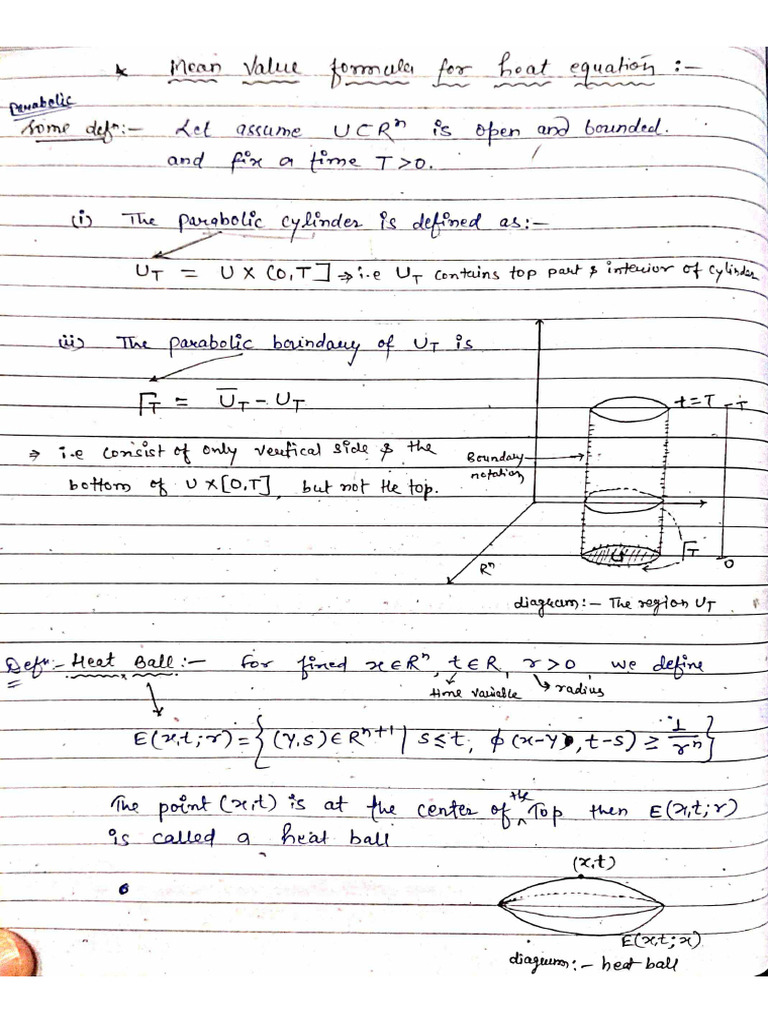 * Mean Value formula for heat equation :-
Parabolic
Some defn:- Let assume U⊂Rⁿ is open and bounded.
and fix a time T>0.
(i) The parabolic cylinder is defined as:-
U_T = U × (0,T] ⇒ i.e U_T contains top part & interior of cylinder
(ii) The parabolic boundary of U_T is
Γ_T = Ū_T - U_T
t=T T
⇒ i.e consist of only vertical side & the
Boundary
notation
bottom of U×[0,T], but not the top.
U Γ_T 0
Rⁿ
diagram:- The region U_T
Defn:- Heat Ball:- For fined x∈Rⁿ, t∈R, r>0 we define
time variable radius
E(x,t;r) = {(y,s)∈Rⁿ⁺¹ | s≤t, ϕ(x-y, t-s) ≥ 1/rⁿ}
The point (x,t) is at the center of the Top then E(x,t;r)
is called a heat ball
(x,t)
E(x,t;x)
diagram:- heat ball